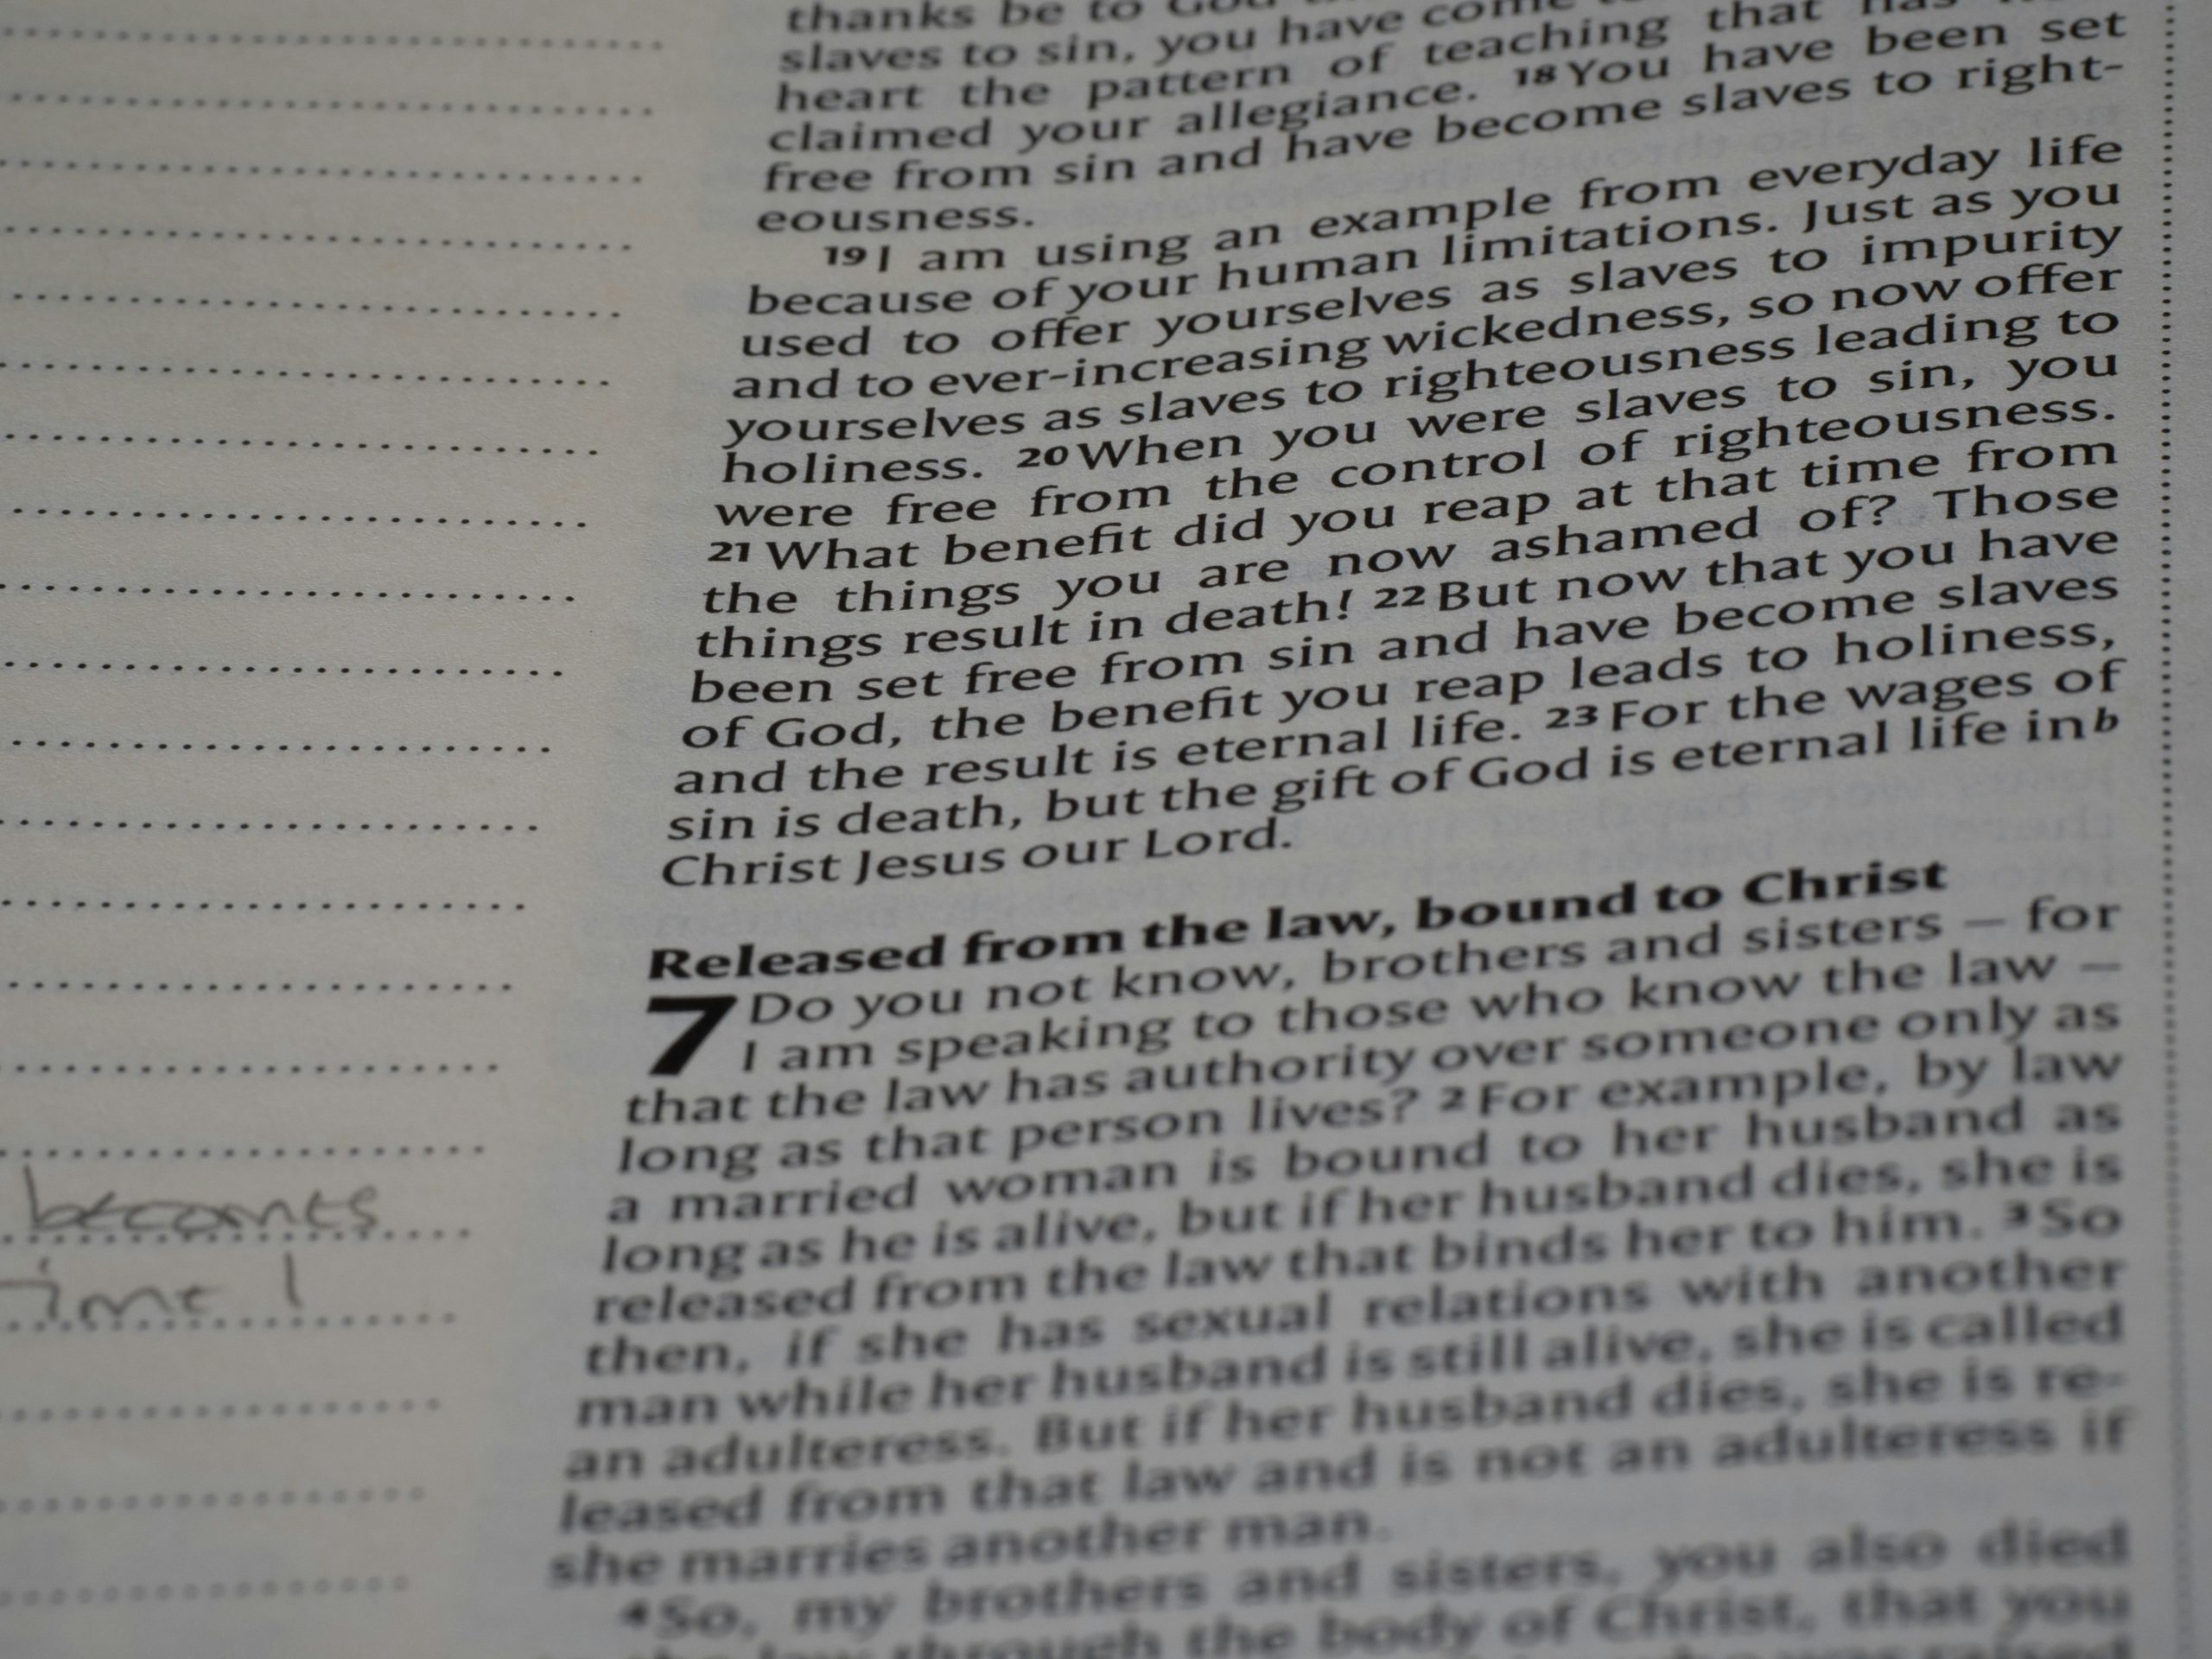 thanks be to God
slaves to sin, you have come
heart the pattern of teaching that has
claimed your allegiance. 18 You have been set
free from sin and have become slaves to right-
eousness.
19 I am using an example from everyday life
because of your human limitations. Just as you
used to offer yourselves as slaves to impurity
and to ever-increasing wickedness, so now offer
yourselves as slaves to righteousness leading to
holiness. 20 When you were slaves to sin, you
were free from the control of righteousness.
21 What benefit did you reap at that time from
the things you are now ashamed of? Those
things result in death! 22 But now that you have
been set free from sin and have become slaves
of God, the benefit you reap leads to holiness,
and the result is eternal life. 23 For the wages of
sin is death, but the gift of God is eternal life in b
Christ Jesus our Lord.
Released from the law, bound to Christ
7 Do you not know, brothers and sisters – for
I am speaking to those who know the law –
that the law has authority over someone only as
long as that person lives? 2 For example, by law
a married woman is bound to her husband as
long as he is alive, but if her husband dies, she is
released from the law that binds her to him. 3 So
then, if she has sexual relations with another
man while her husband is still alive, she is called
an adulteress. But if her husband dies, she is re-
leased from that law and is not an adulteress if
she marries another man.
4 So, my brothers and sisters, you also died
the law through the body of Christ, that you
becomes
time I